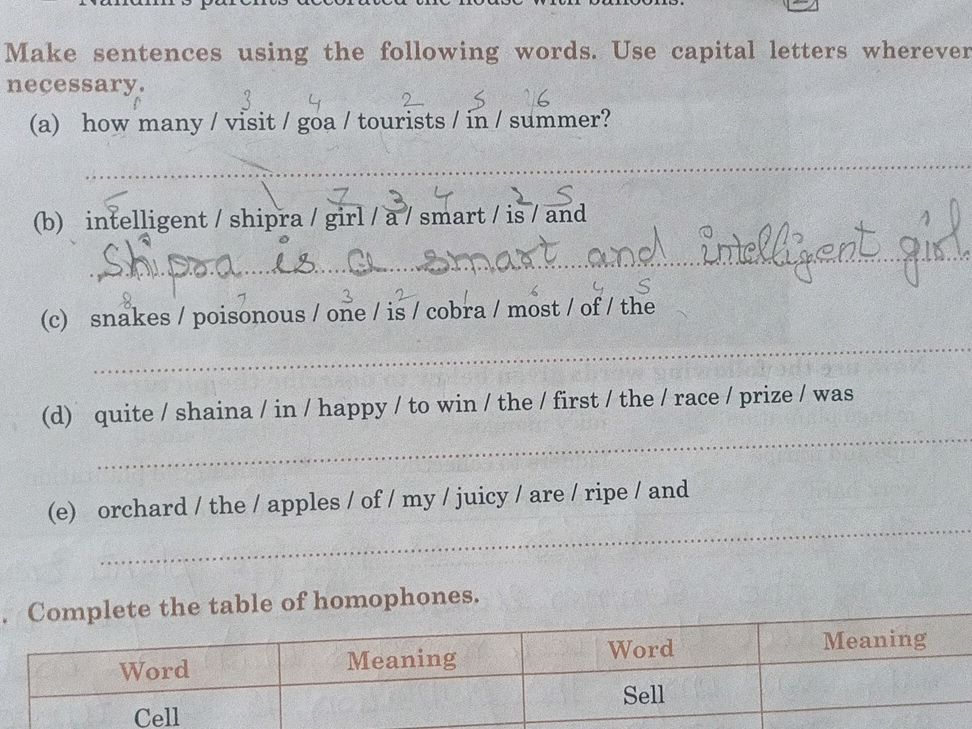 Make sentences using the following words. Use capital letters wherever
necessary.
1 3 4 2 5 6
(a) how many / visit / goa / tourists / in / summer?
1 7 3 4 2 5
(b) intelligent / shipra / girl / a / smart / is / and
Shipra is a smart and intelligent girl.
8 7 3 2 1 6 4 5
(c) snakes / poisonous / one / is / cobra / most / of / the
(d) quite / shaina / in / happy / to win / the / first / the / race / prize / was
(e) orchard / the / apples / of / my / juicy / are / ripe / and
. Complete the table of homophones.
Word Meaning Word Meaning
Cell Sell